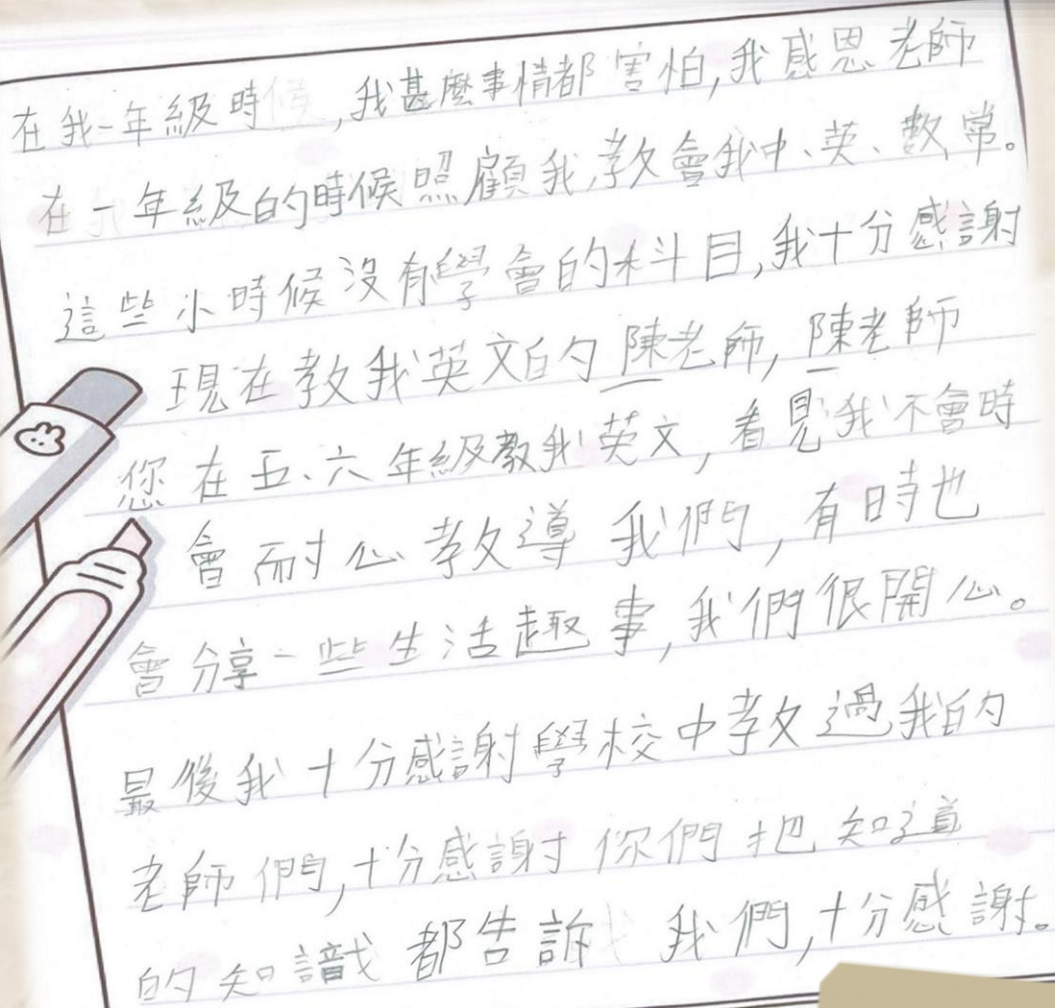 在我一年級時,我甚麼事情都害怕,我感恩老師
在一年級的時候照顧我,教會我中、英、數,常。
這些小時候沒有學會的科目,我十分感謝
現在教我英文的陳老師,陳老師
您在五、六年級教我英文,看見我不會時
會耐心教導我們,有時也
會分享一些生活趣事,我們很開心。
最後我十分感謝學校中教過我的
老師們,十分感謝你們把知道
的知識都告訴我們,十分感謝。